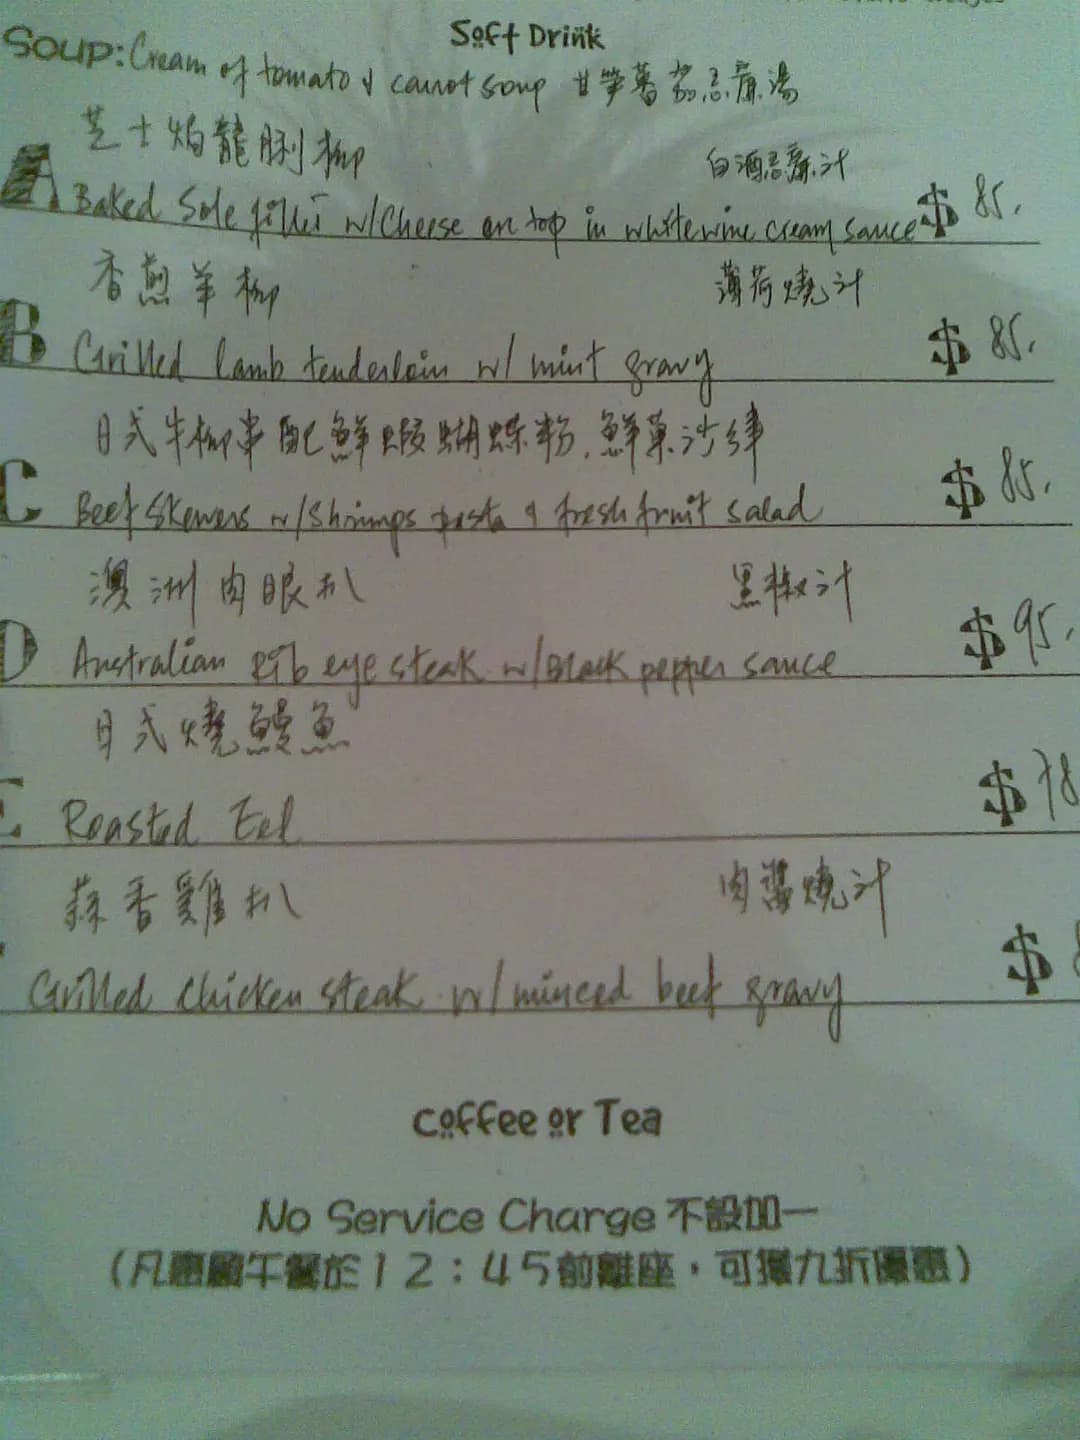 Soft Drink
SOUP: Cream of tomato & carrot soup 甘笋蕃茄忌廉湯
芝士焗龍脷柳 白酒忌廉汁
A Baked Sole fillet w/Cheese on top in whitewine cream sauce $ 85.
香煎羊柳 薄荷燒汁
B Grilled lamb tenderloin w/ mint gravy $ 85.
日式牛柳串配鮮蝦蝴蝶粉,鮮菓沙律
C Beef Skewers w/Shrimps pasta & fresh fruit salad $ 85.
澳洲肉眼扒 黑椒汁
D Australian Rib eye steak w/Black pepper sauce $ 95.
日式燒鰻魚
E Roasted Eel $ 78
蒜香雞扒 肉醬燒汁
Grilled chicken steak w/minced beef gravy $ 8
Coffee or Tea
No Service Charge 不設加一
(凡惠顧午餐於12:45前離座,可獲九折優惠)